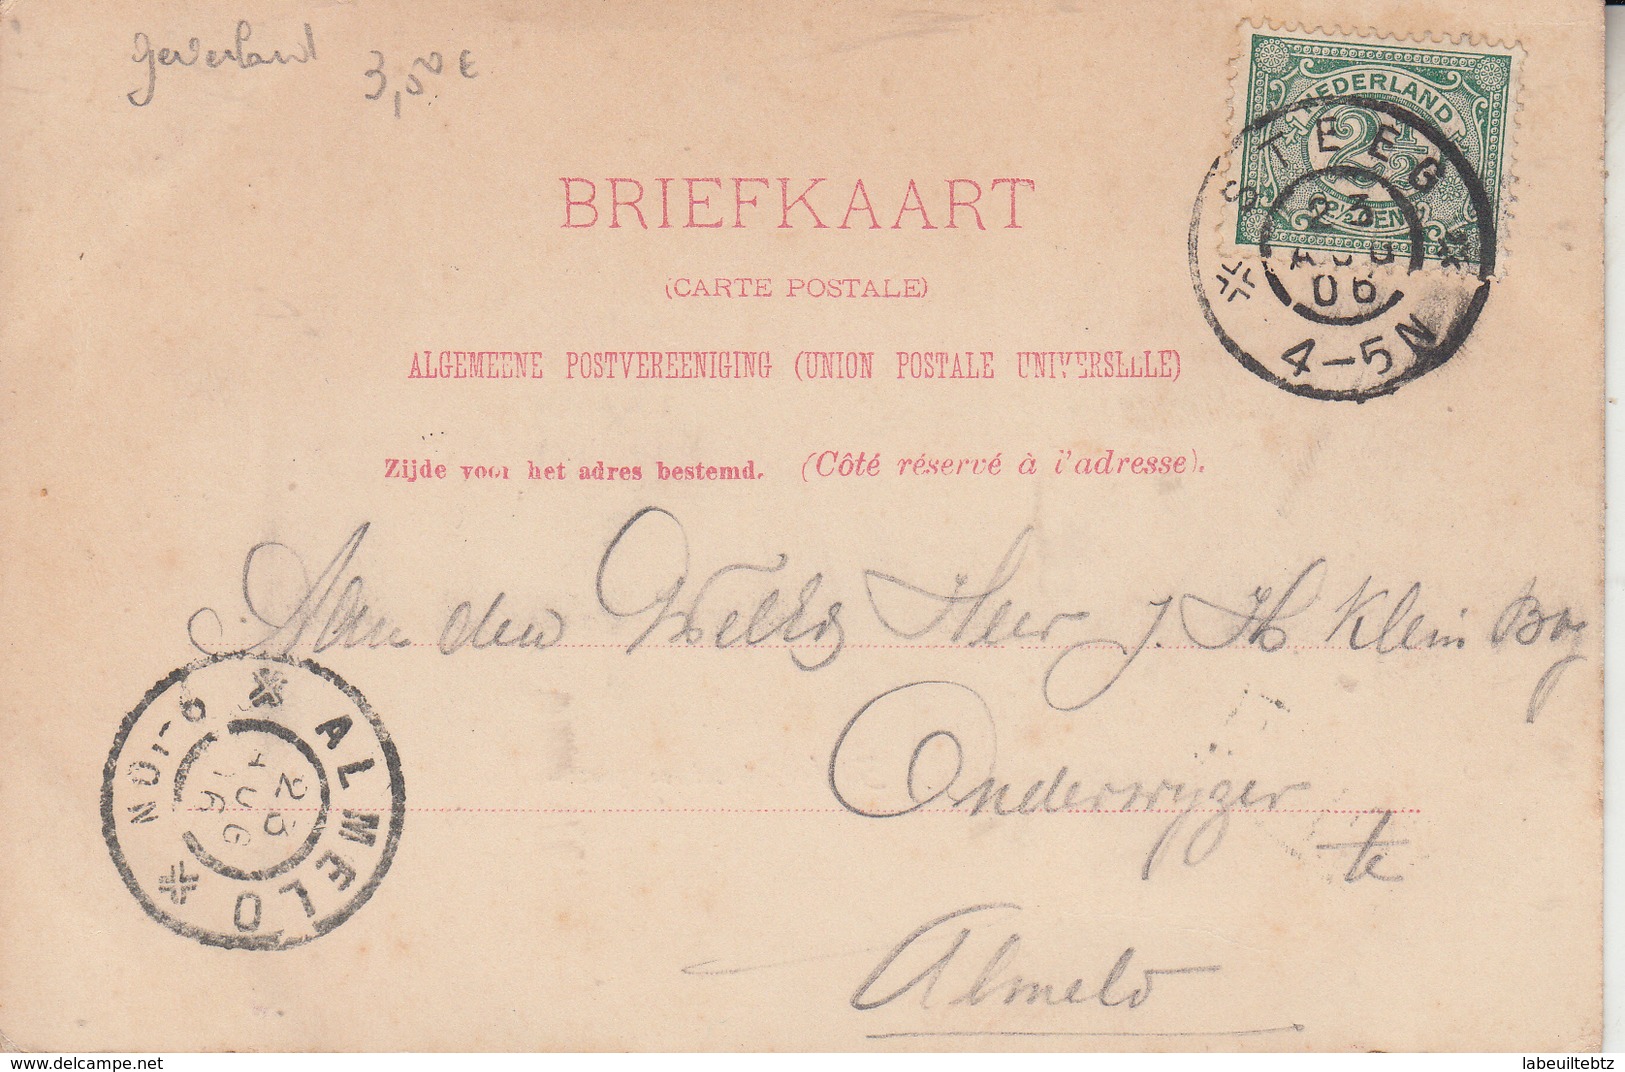 Geverland 3,50 €
NEDERLAND
2½
CEN
STEEG
23
AUG
06
4-5N
BRIEFKAART
(CARTE POSTALE)
ALGEMEENE POSTVEREENIGING (UNION POSTALE UNIVERSELLE)
Zijde voor het adres bestemd. (Côté réservé à l'adresse).
Aan den WelEd Heer J. H. Klein Bog
Onderwijzer
te
Almelo
ALMELO
9-10N
23
AUG
06
delcampe.net
labeuiltebtz